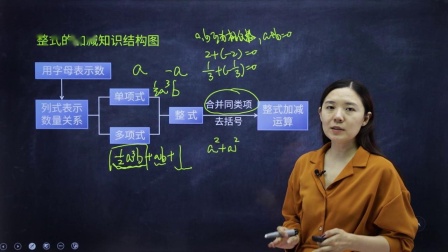 整式的加减知识结构图
a,b互为相反数, a+b=0
2+(-2)=0
1/3+(-1/3)=0
用字母表示数
a -a
1/2a³b
单项式
列式表示
数量关系
整式
合并同类项
去括号
整式加减
运算
多项式
1/2a³b+ab+1
a²+a²